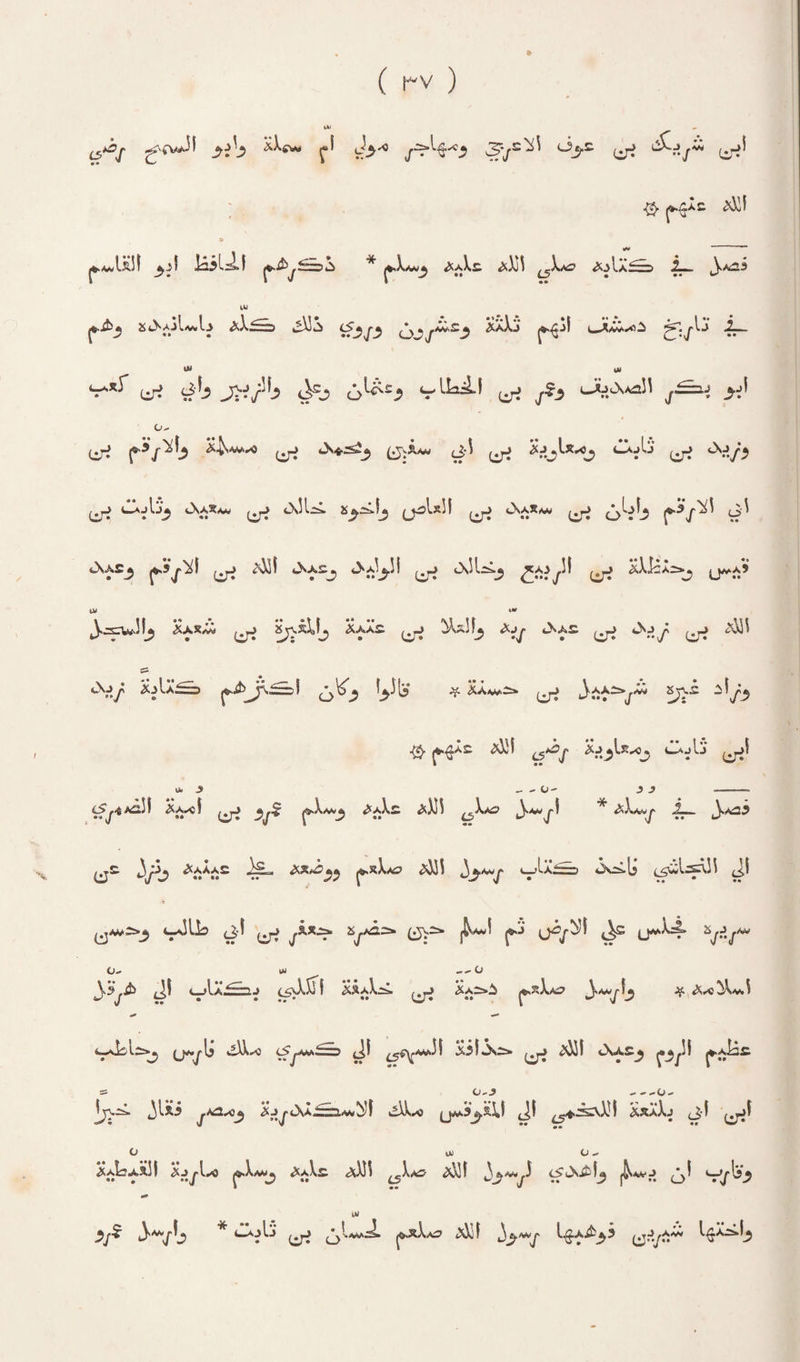 ( ٣٧ )
ابن شريك بن عوف الاعرج ومهاجر مولى ام سلمة وناعم السبعى رضى
الله عنهم ۞
فصل فى كتابه صلى الله عليه وسلم * ذكرهم الحافظ ابو القاسم
فى تاريخ دمشق انهم ثلثة وعشرون وروى ذلك كله باسانيده وهم
ابو بكر الصديق وعمر بن الخطاب وعثمان وعلى والزبير وابى بن كعب
وزيد بن ثابت ومعاوية بن ابى سفين ومحمد بن مسلمة والارقم بن
ابى الارقم وابان بن سعيد بن العاص واخوه خالد بن سعيد وثابت بن
قيس وحنظلة بن الربيع وخالد بن الوليد وعبد الله بن الارقم وعبد
الله بن زيد بن عبد ربه والعلا بن عقبة والمغيرة بن شعبة والسجل
وزاد غيره شرحبيل بن حسنة * قالوا وكان اكثرهم كتابة زيد
ابن ثابت ومعاوية رضى الله عنهم ۞
فصل فى رسله * ارسل صلى الله عليه وسلم عمرو بن امية الضمرى
الى النجاشى فاخذ كتاب رسول الله صلعم ووضعه على عينيه ونزل عن
سريره فجلس على الارض ثم اسلم حين حضره جعفر بن ابى طالب وحسن
اسلامه * وارسل صلعم دحية بن خليفة الكلبى بكتاب الى هرقل
عظيم الروم وعبد الله بن حذافة السهمى الى كسرى ملك فارس وحاطب
ابن ابى بلتعة اللخمى الى المقوقس ملك الاسكندرية ومصر فقال خيرا
وقارب ان يسلم واهدى لرسول الله صلى الله عليه وسلم مارية القبطية
واختها شيرين فوهبها رسول الله صلعم لحسان بن ثابت * وارسل عمرو